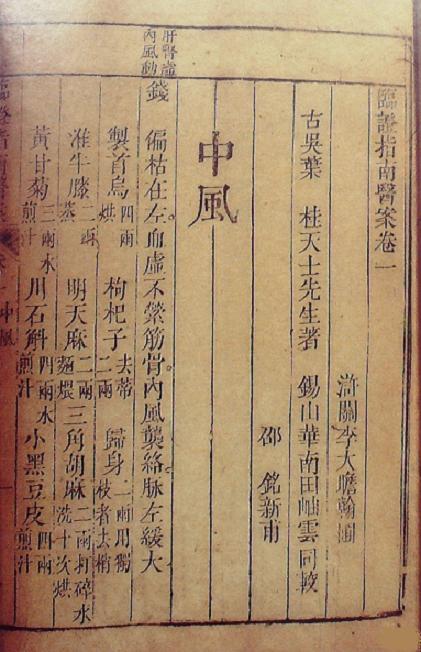 臨證指南醫案卷一
滸關李大瞻翰圃
古吳葉 桂天士先生著 錫山華南田岫雲同較
邵 銘新甫
中風
肝腎虛
內風動
錢 偏枯在左。血虛不縈筋骨。內風襲絡。脉左緩大
製首烏四兩烘 枸杞子去蒂二兩 歸身二兩用獨枝者去梢
淮牛膝二兩蒸 明天麻二兩麵煨 三角胡麻二兩打碎水洗十次烘
黃甘菊三兩水煎汁 川石斛四兩水煎汁 小黑豆皮四兩煎汁
臨證指南醫案 中風